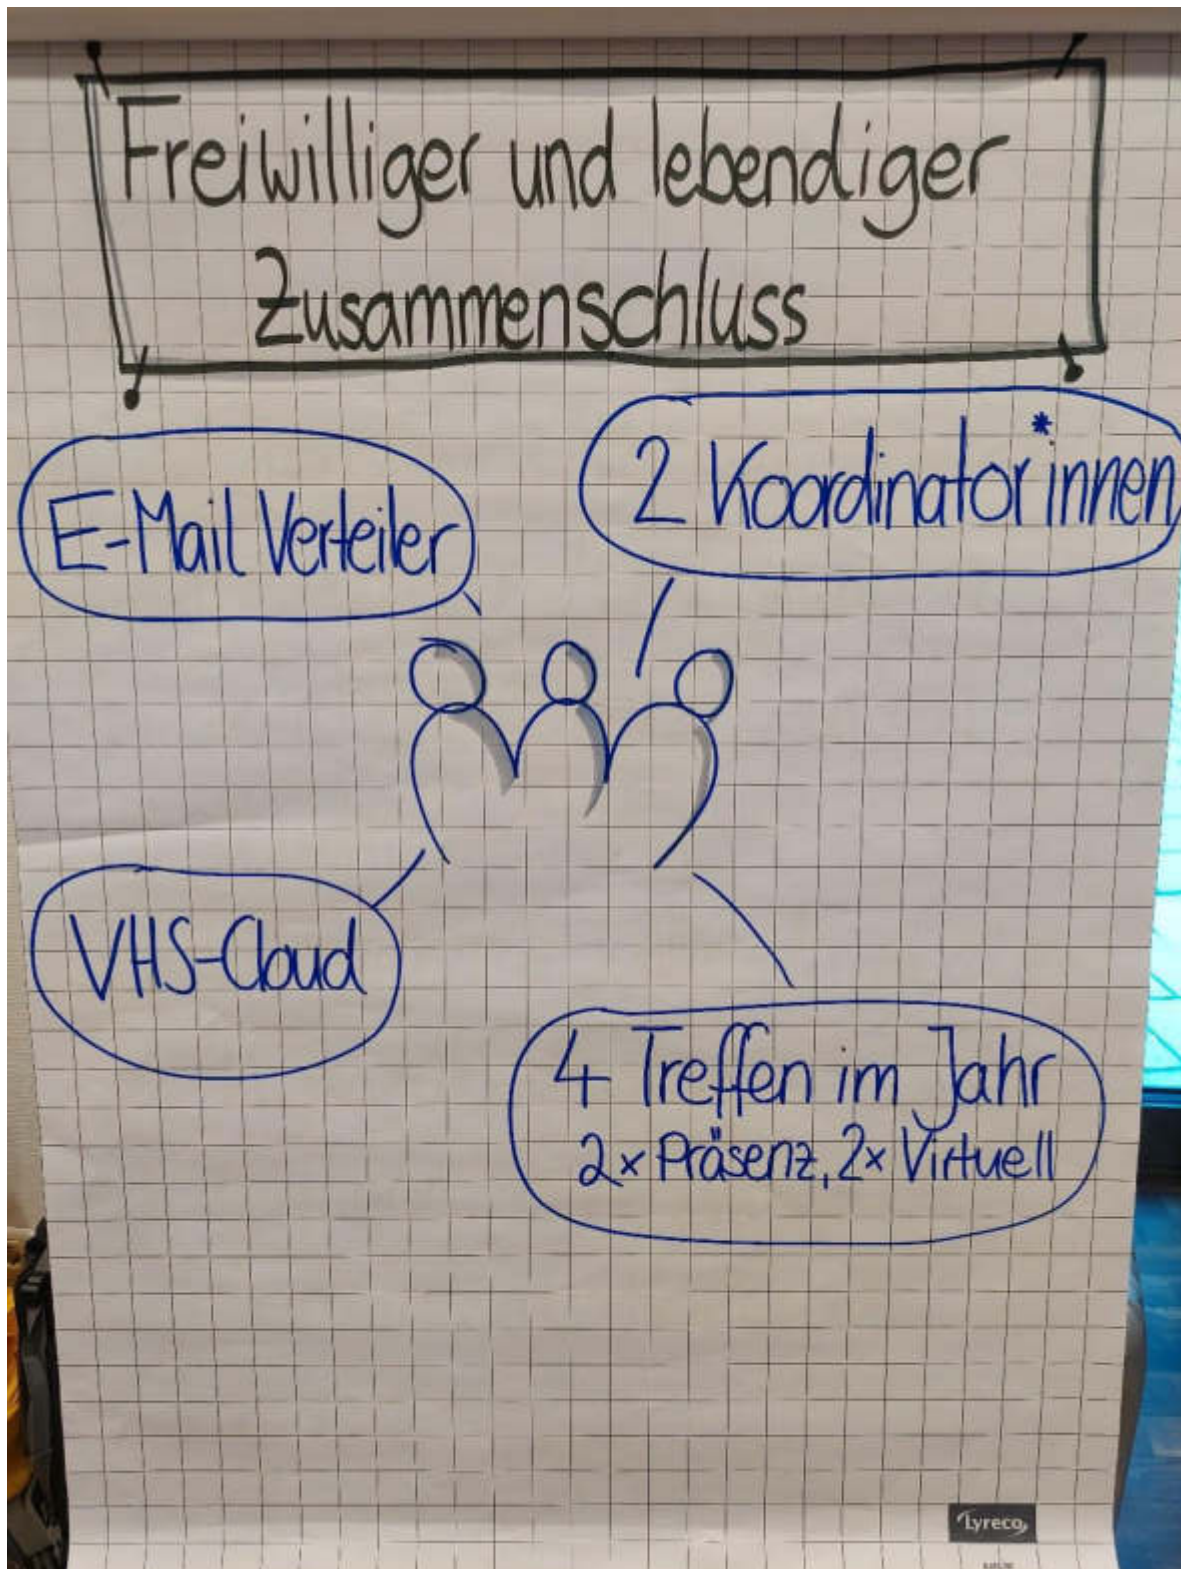 Freiwilliger und lebendiger
Zusammenschluss
E-Mail Verteiler
2 Koordinator*innen
VHS-Cloud
4 Treffen im Jahr
2x Präsenz, 2x Virtuell
Lyreco